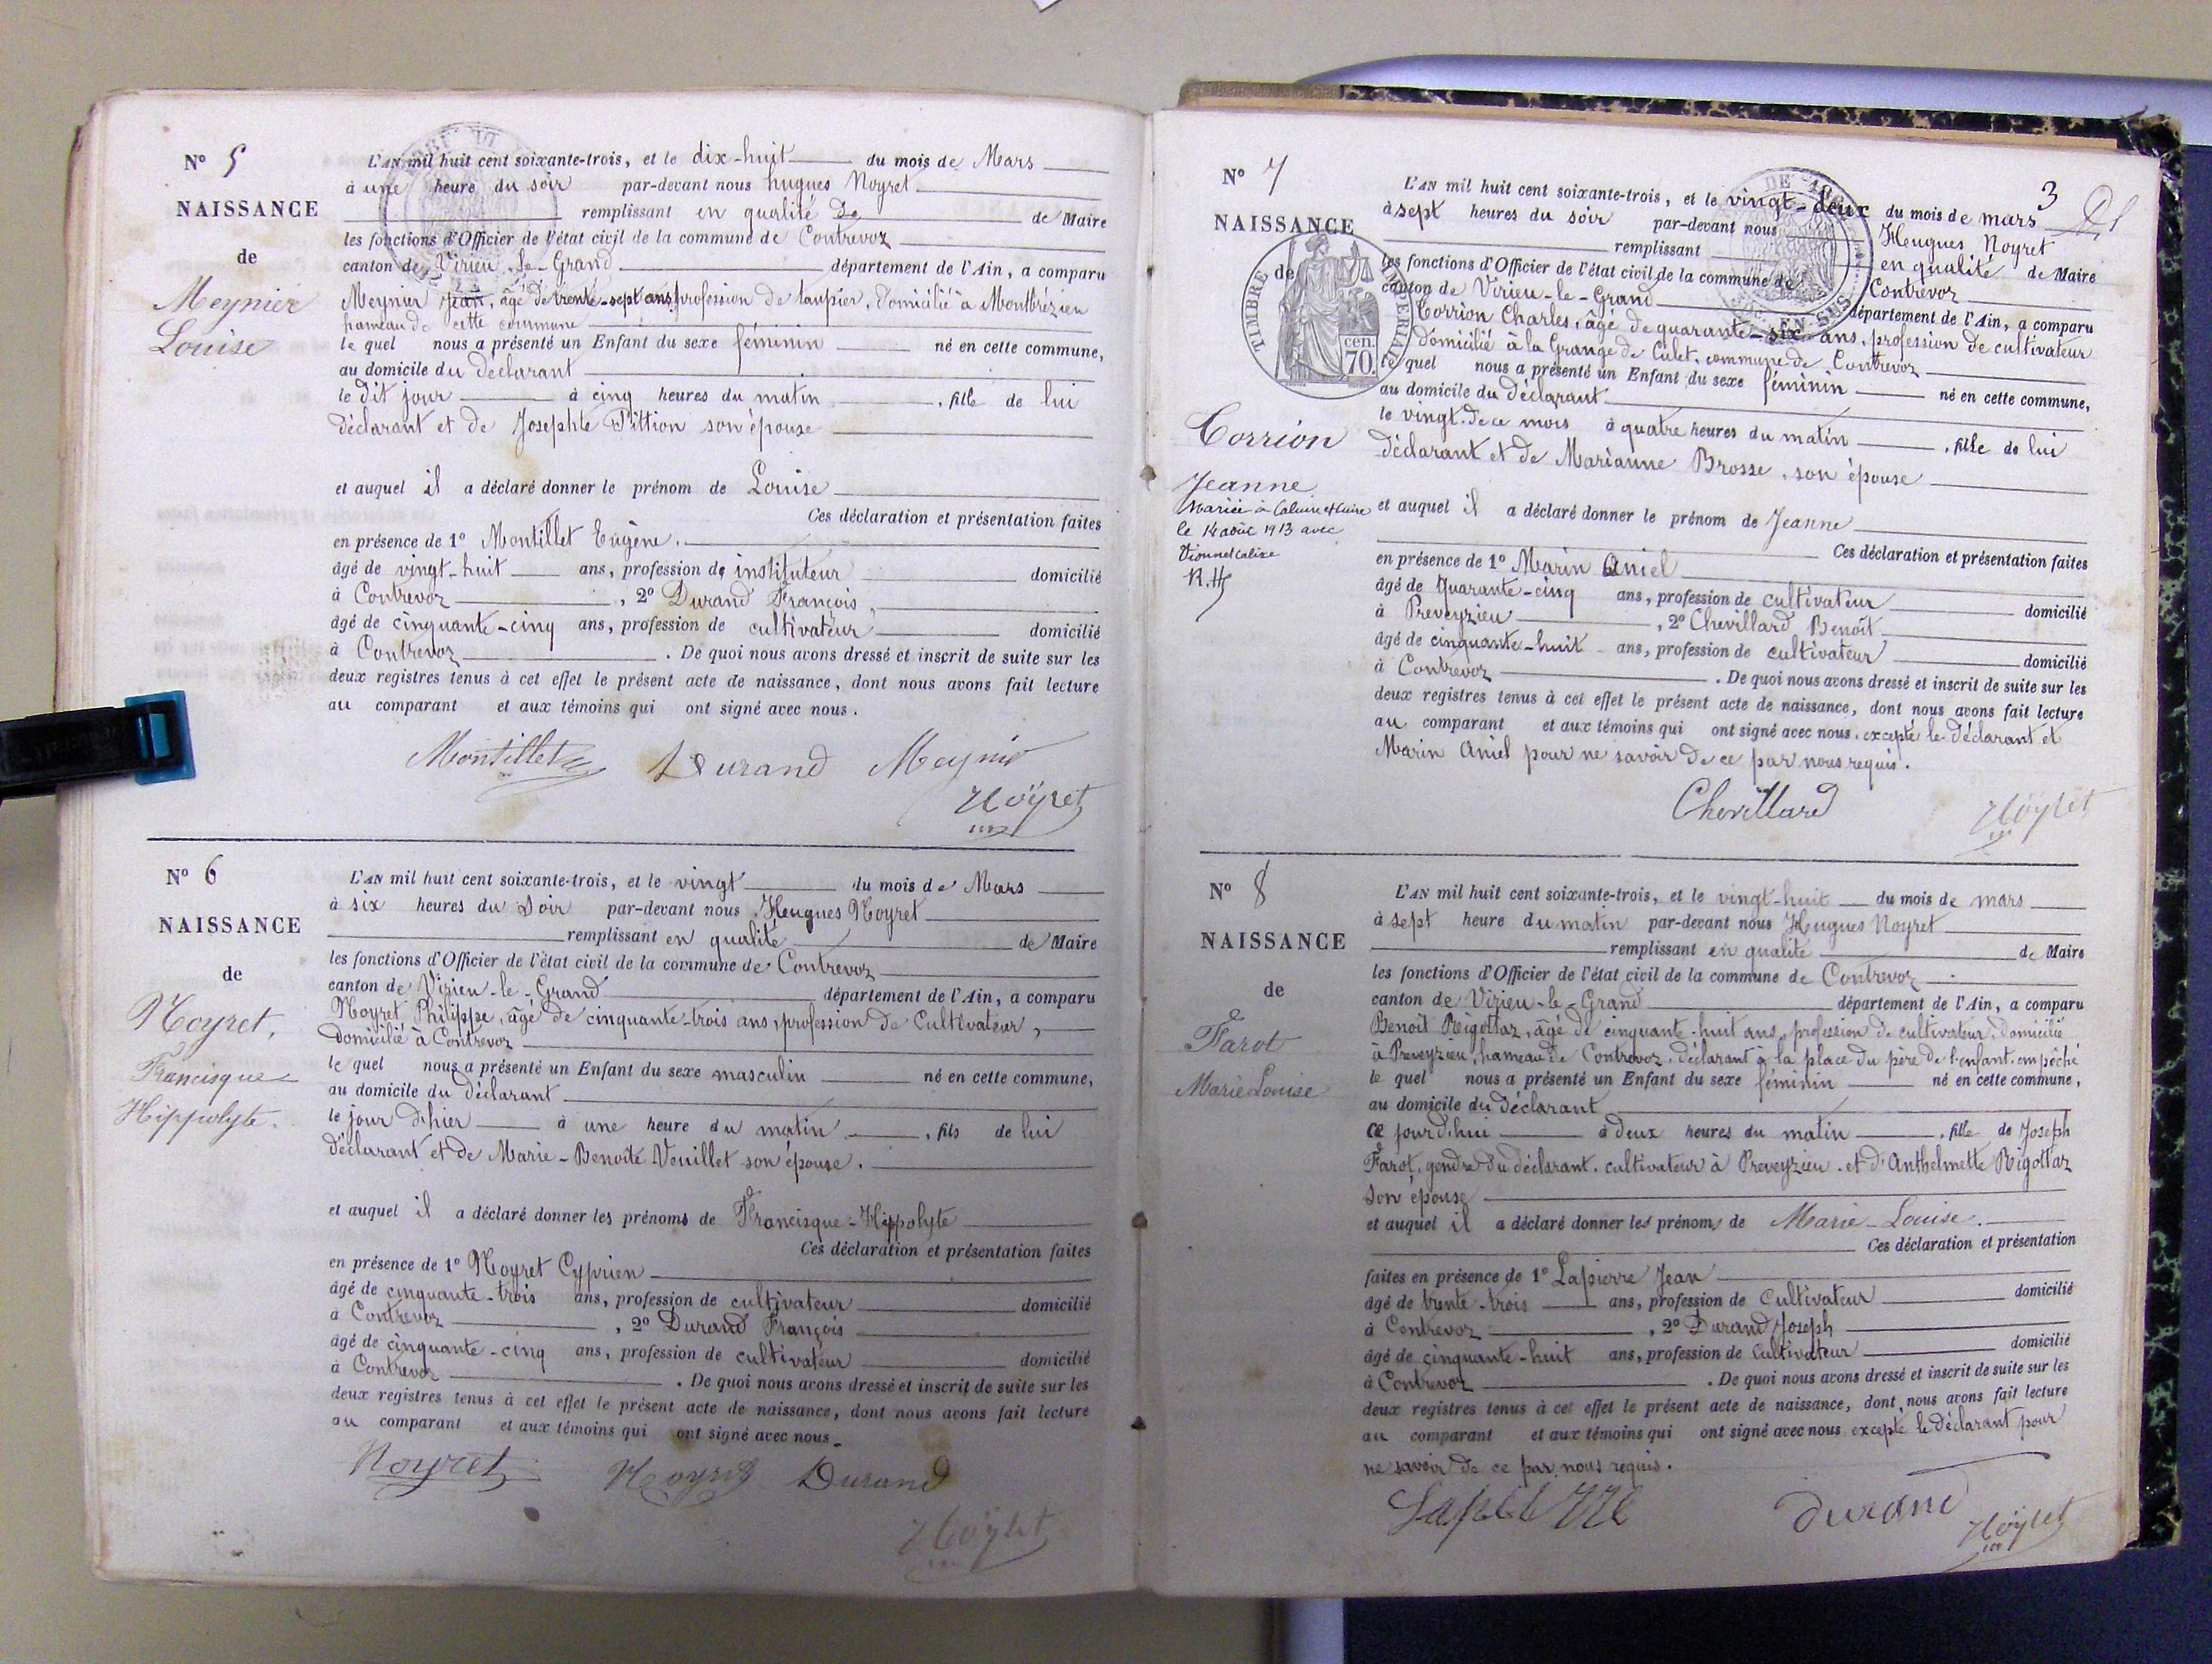 N° 5
NAISSANCE
de
Meynier
Louise
L'AN mil huit cent soixante-trois, et le dix-huit du mois de Mars
à une heure du soir par-devant nous hugues Noyret
remplissant en qualité de de Maire
les fonctions d'Officier de l'état civil de la commune de Contrevoz
canton de Virieu-le-Grand département de l'Ain, a comparu
Meynier Jean, âgé de trente-sept ans, profession de taupier, domicilié à Montbrézieu
hameau de cette commune
le quel nous a présenté un Enfant du sexe féminin né en cette commune,
au domicile du déclarant
le dit jour à cinq heures du matin, fille de lui
déclarant et de Josephte Pittion son épouse
et auquel il a déclaré donner le prénom de Louise
Ces déclaration et présentation faites
en présence de 1° Montillet Eugène.
âgé de vingt-huit ans, profession de instituteur domicilié
à Contrevoz, 2° Durand François,
âgé de cinquante-cinq ans, profession de cultivateur domicilié
à Contrevoz. De quoi nous avons dressé et inscrit de suite sur les
deux registres tenus à cet effet le présent acte de naissance, dont nous avons fait lecture
au comparant et aux témoins qui ont signé avec nous.
Montillet Durand Meynier
Noÿret
N° 6
NAISSANCE
de
Noyret,
Francisque
Hippolyte.
L'AN mil huit cent soixante-trois, et le vingt du mois de Mars
à six heures du Soir par-devant nous Hugues Noyret
remplissant en qualité de Maire
les fonctions d'Officier de l'état civil de la commune de Contrevoz
canton de Virieu-le-Grand département de l'Ain, a comparu
Noyret Philippe, âgé de cinquante-trois ans, profession de Cultivateur,
domicilié à Contrevoz
le quel nous a présenté un Enfant du sexe masculin né en cette commune,
au domicile du déclarant
le jour d'hier à une heure du matin, fils de lui
déclarant et de Marie-Benoite Veuillet son épouse.
et auquel il a déclaré donner les prénoms de Francisque-Hippolyte
Ces déclaration et présentation faites
en présence de 1° Noyret Cyprien
âgé de cinquante-trois ans, profession de cultivateur domicilié
à Contrevoz, 2° Durand François
âgé de cinquante-cinq ans, profession de cultivateur domicilié
à Contrevoz. De quoi nous avons dressé et inscrit de suite sur les
deux registres tenus à cet effet le présent acte de naissance, dont nous avons fait lecture
au comparant et aux témoins qui ont signé avec nous.
Noyret Noyret Durand
Noÿret
3
N° 7
NAISSANCE
de
TIMBRE IMPERIAL
70 cen.
Corrion
Jeanne
Mariée à Caluire et Cuire
le 14 août 1913 avec
Vionnet Calixe
L'AN mil huit cent soixante-trois, et le vingt-deux du mois de mars
à sept heures du soir par-devant nous Hugues Noyret
remplissant en qualité de Maire
les fonctions d'Officier de l'état civil de la commune de Contrevoz
canton de Virieu-le-Grand département de l'Ain, a comparu
Corrion Charles, âgé de quarante-six ans, profession de cultivateur
domicilié à la Grange de Culet, commune de Contrevoz
le quel nous a présenté un Enfant du sexe féminin né en cette commune,
au domicile du déclarant
le vingt de ce mois à quatre heures du matin, fille de lui
déclarant et de Marianne Brosse, son épouse
et auquel il a déclaré donner le prénom de Jeanne
Ces déclaration et présentation faites
en présence de 1° Marin Aniel
âgé de Quarante-cinq ans, profession de cultivateur domicilié
à Preveyzieu, 2° Chevillard Benoît
âgé de cinquante-huit ans, profession de cultivateur domicilié
à Contrevoz. De quoi nous avons dressé et inscrit de suite sur les
deux registres tenus à cet effet le présent acte de naissance, dont nous avons fait lecture
au comparant et aux témoins qui ont signé avec nous, excepté le déclarant et
Marin Aniel pour ne savoir de ce par nous requis.
Chevillard Noÿret
N° 8
NAISSANCE
de
Farot
Marie Louise
L'AN mil huit cent soixante-trois, et le vingt-huit du mois de mars
à sept heure du matin par-devant nous Hugues Noyret
remplissant en qualité de Maire
les fonctions d'Officier de l'état civil de la commune de Contrevoz
canton de Virieu-le-Grand département de l'Ain, a comparu
Benoît Rigottaz, âgé de cinquante-huit ans, profession de cultivateur, domicilié
à Preveyzieu, hameau de Contrevoz, déclarant à la place du père de l'enfant empêché
le quel nous a présenté un Enfant du sexe féminin né en cette commune,
au domicile du déclarant
ce jourd'hui à deux heures du matin, fille de Joseph
Farot, gendre du déclarant, cultivateur à Preveyzieu, et d'Anthelmette Rigottaz
son épouse
et auquel il a déclaré donner les prénoms de Marie-Louise.
Ces déclaration et présentation
faites en présence de 1° Lapierre Jean
âgé de trente-trois ans, profession de Cultivateur domicilié
à Contrevoz, 2° Durand Joseph
âgé de cinquante-huit ans, profession de Cultivateur domicilié
à Contrevoz. De quoi nous avons dressé et inscrit de suite sur les
deux registres tenus à cet effet le présent acte de naissance, dont nous avons fait lecture
au comparant et aux témoins qui ont signé avec nous excepté le déclarant pour
ne savoir de ce par nous requis.
Lapierre durand Noÿret